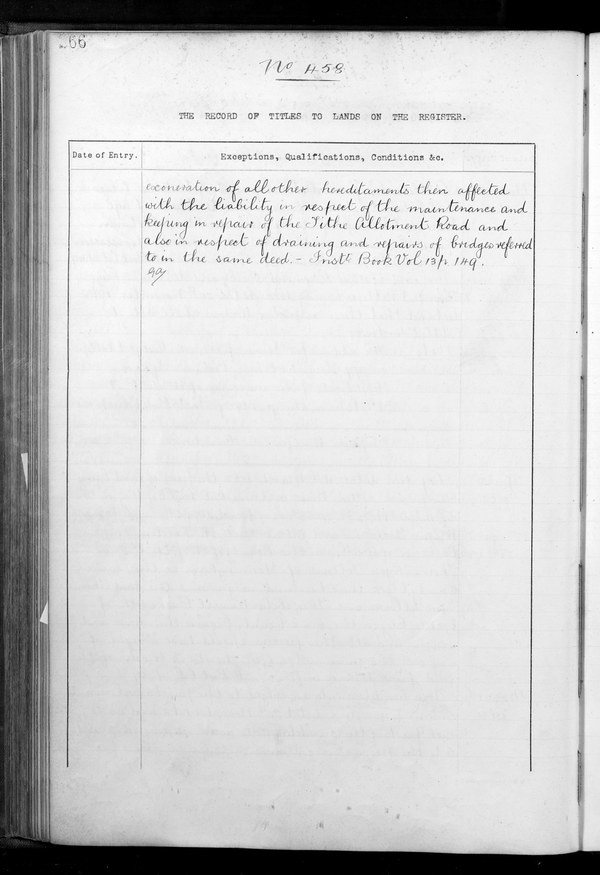 66
No 458
THE RECORD OF TITLES TO LANDS ON THE REGISTER.
Date of Entry.
Exceptions, Qualifications, Conditions &c.
exoneration of all other hereditaments then affected
with the liability in respect of the maintenance and
keeping in repair of the Tithe Allotment Road and
also in respect of draining and repairs of bridges referred
to in the same deed. - Instt Book Vol 13 p. 149.